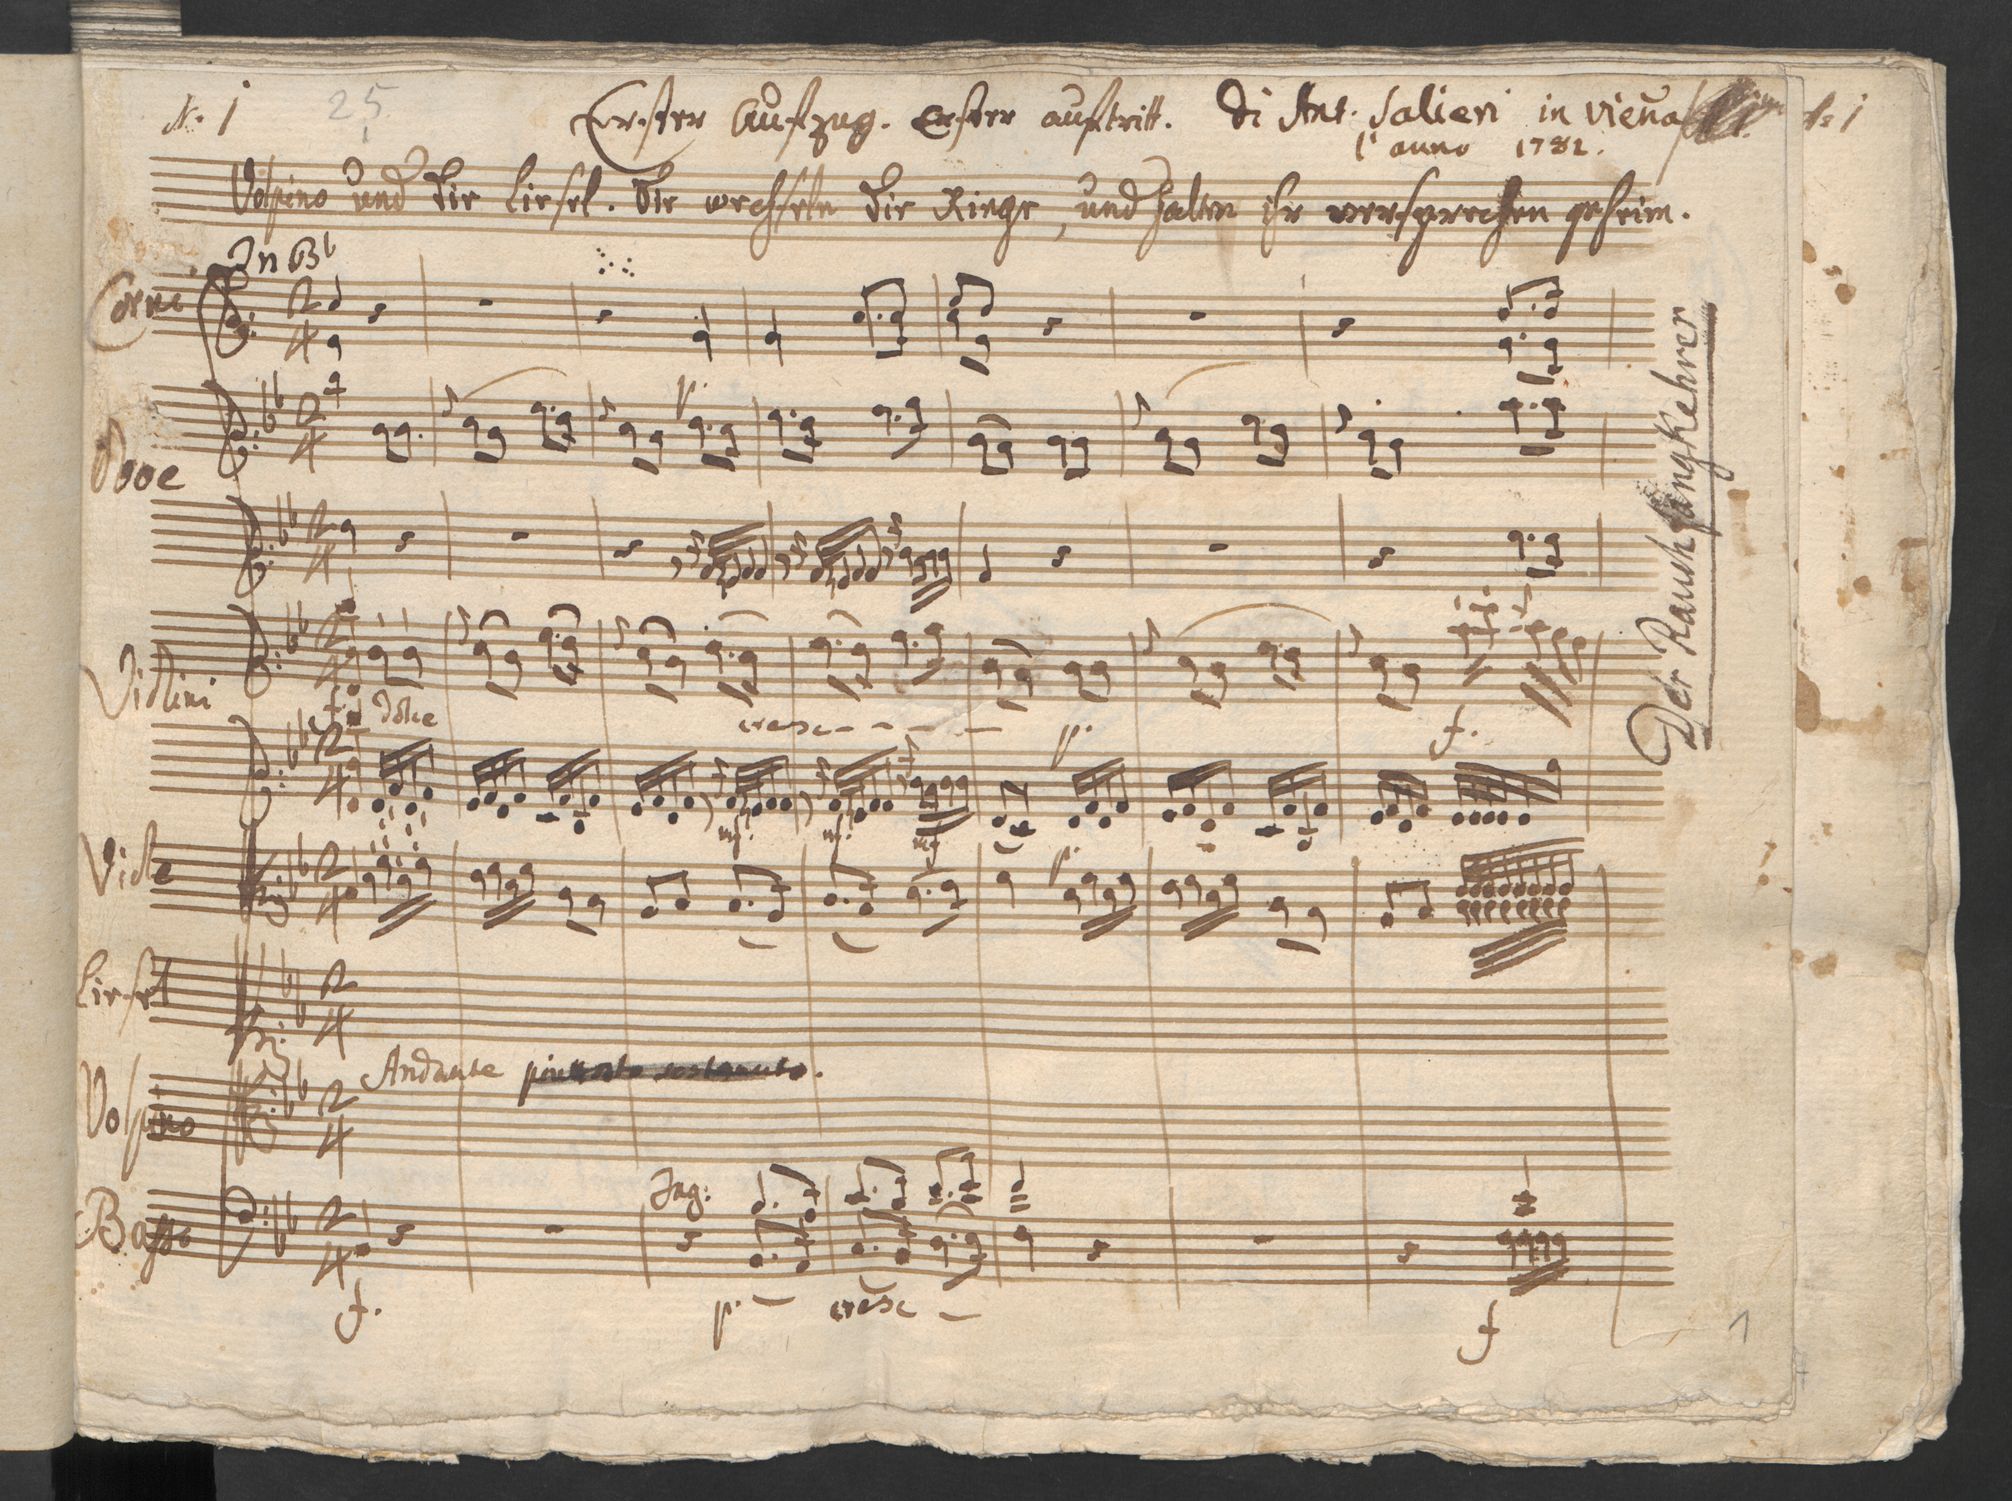 N. 1
25
Erster Aufzug. Erster auftritt. di Ant. Salieri in Viena
l'anno 1781.
Volpino und die Liesel. Sie wechseln die Ringe, und halten ihr versprechen geheim.
In B♭
Corni
Oboe
p.
Violini
f. dolce
cresc
p.
f.
mf. mf. mf
Viole
p.
Liesel
Andante piuttosto sostenuto.
Volpino
Fag:
Basso
f.
p.
cresc
f
Der Rauchfangkehrer
1
N. 1